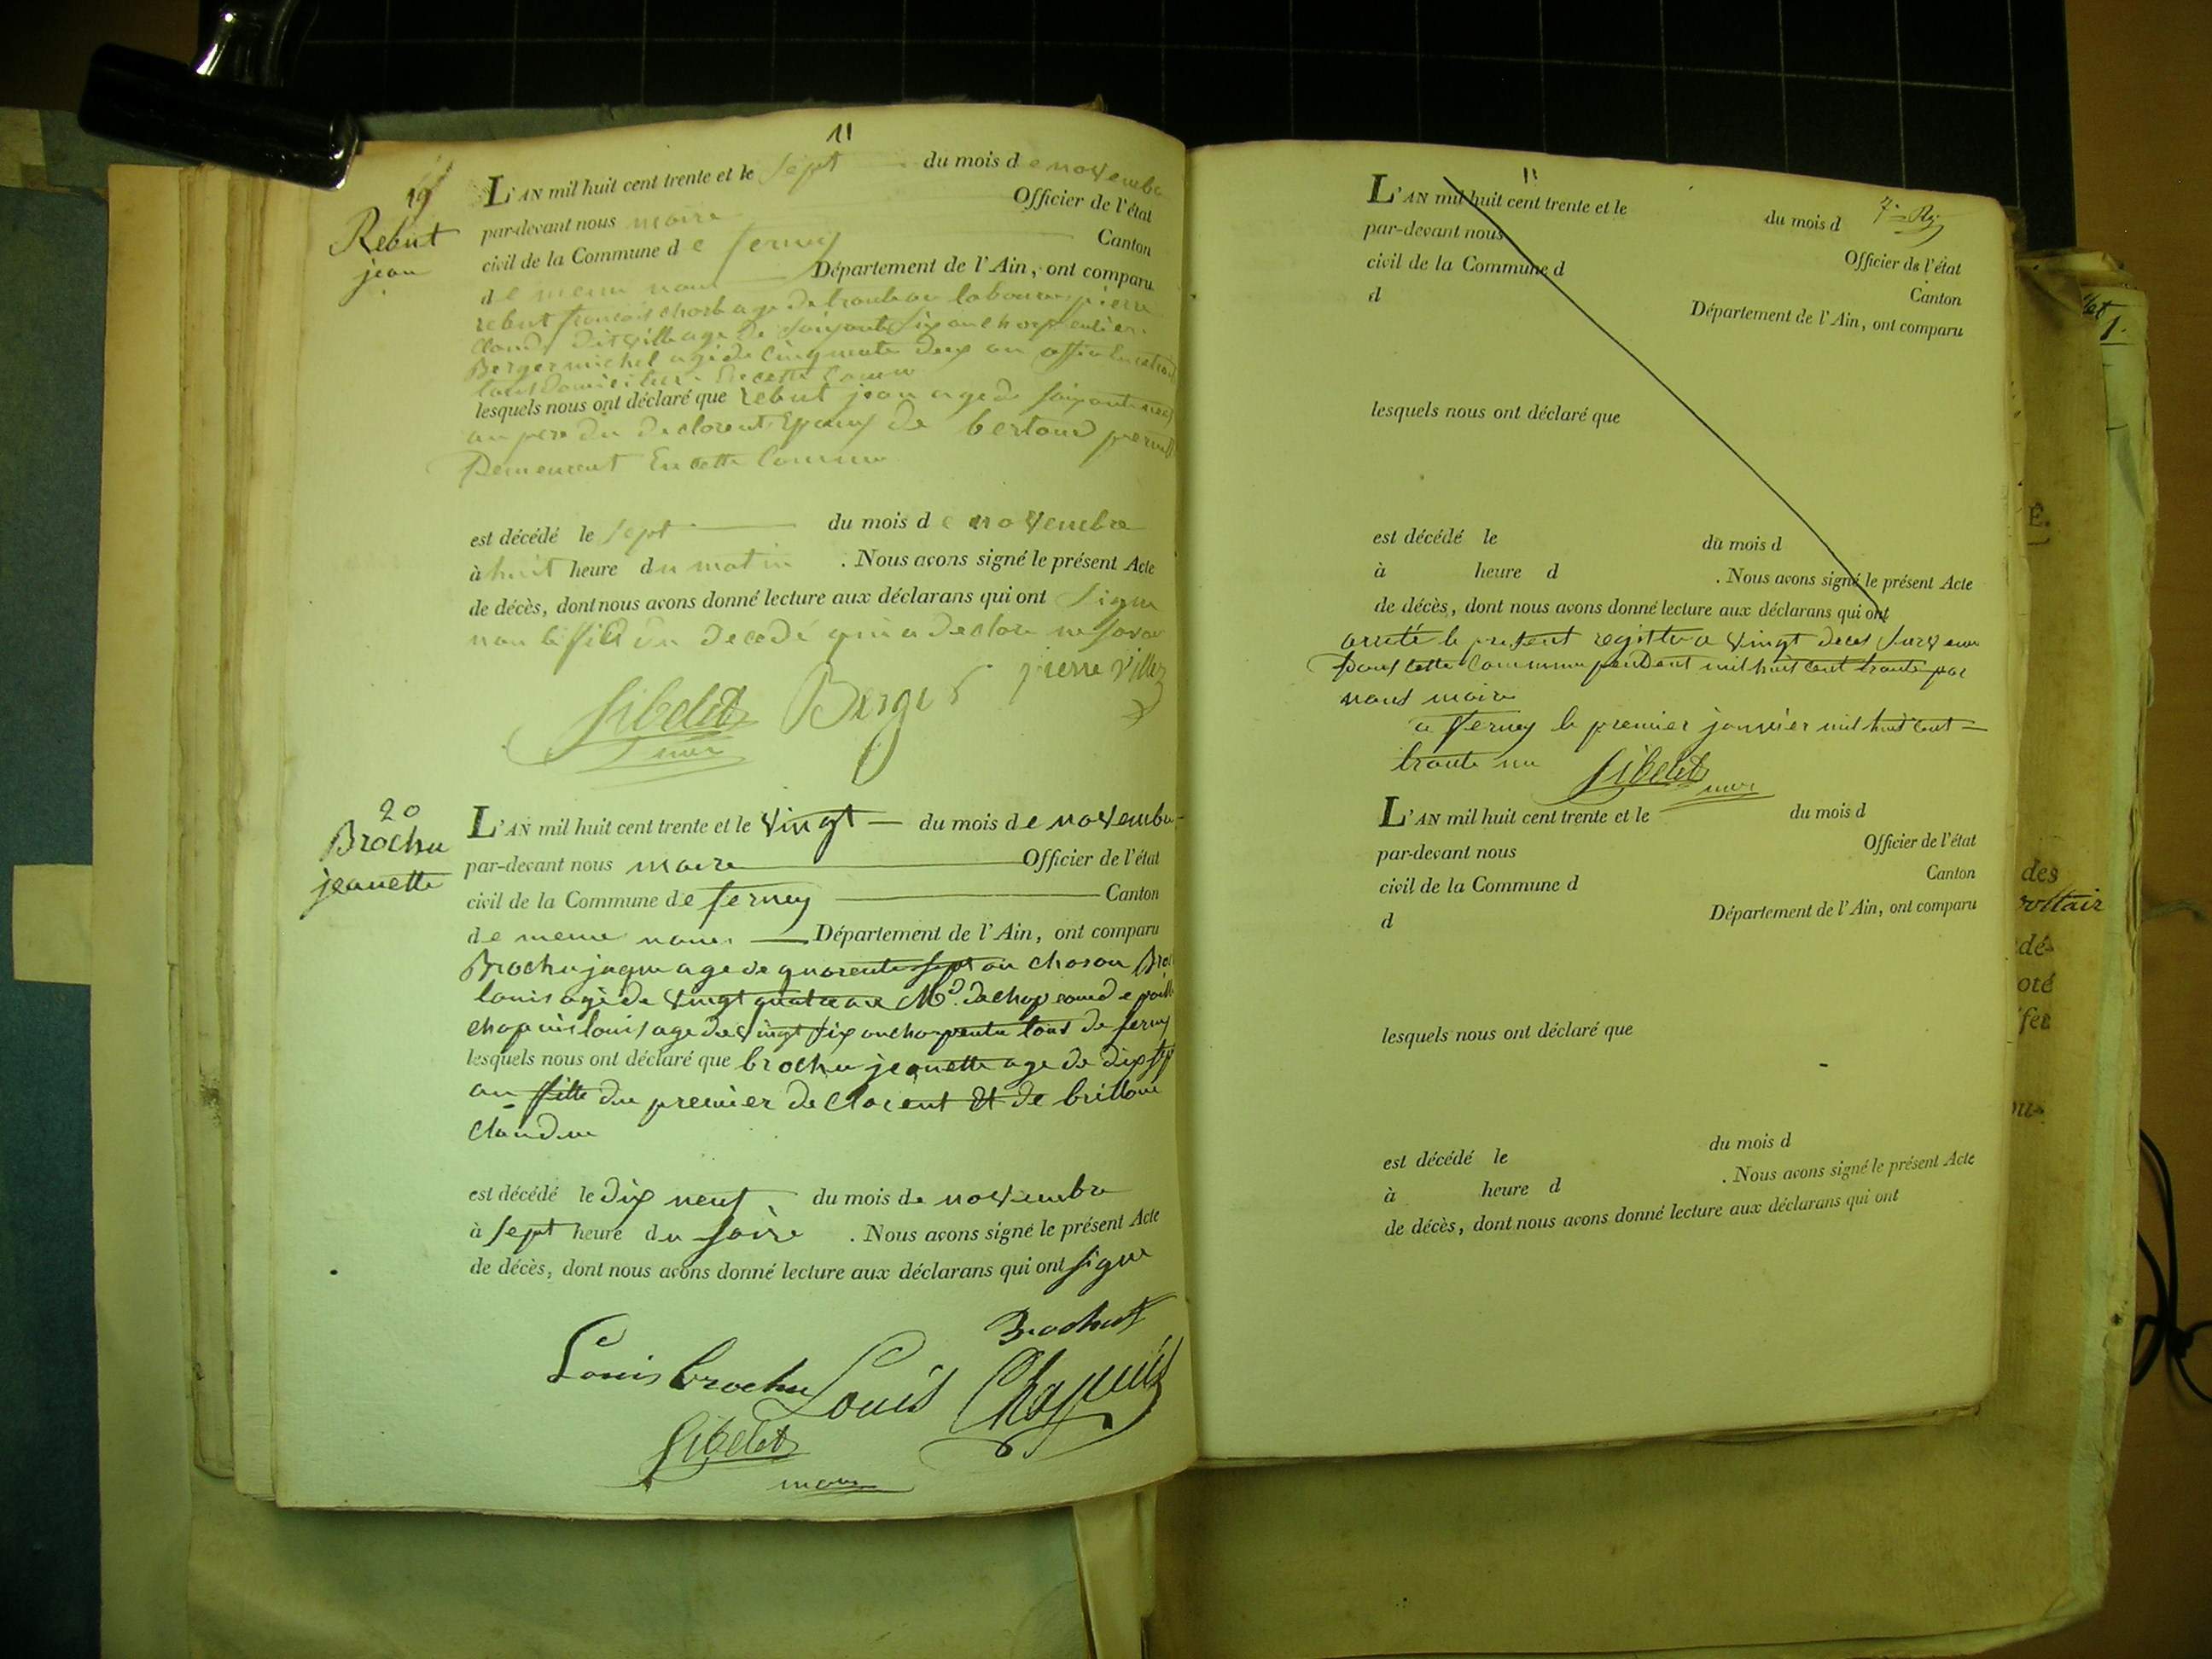 11
19
Rebut
jean
L'AN mil huit cent trente et le sept du mois de novembre
par-devant nous maire Officier de l'état
civil de la Commune de ferney Canton
de meme nom Département de l'Ain, ont comparu
rebut francois age de trente laboureur pierre
claude dit ville age de soixante six an charpentier
Berger michel agé de cinquante deux an
tous domicilier En cette Commune
lesquels nous ont déclaré que rebut jean age de soixante neuf
an pere du declarent Epoux de bertoud pernette
Demeurant En cette Commune
est décédé le sept du mois de novembre
à huit heure du matin . Nous avons signé le présent Acte
de décès, dont nous avons donné lecture aux déclarans qui ont signe
non le fils du decedé qui a declare ne savoir
Gibelet Berger pierre Ville
maire
20
Brochu
jeanette
L'AN mil huit cent trente et le vingt du mois de novembre
par-devant nous maire Officier de l'état
civil de la Commune de ferney Canton
de meme nom Département de l'Ain, ont comparu
Brochu jaque age de quarente sept an charon
louis agé de vingt quatre ans Md. de chapeaux de paille
chapuis louis age de vingt six an charpentie tous de ferney
lesquels nous ont déclaré que brochu jeanette age de dix sept
an fille du premier declarent Et de
claudine
est décédé le dix neuf du mois de novembre
à sept heure du soire . Nous avons signé le présent Acte
de décès, dont nous avons donné lecture aux déclarans qui ont signe
Brochut
Louis brochu Louis Chapuis
Gibelet
maire
11
7.
L'AN mil huit cent trente et le du mois d
par-devant nous Officier de l'état
civil de la Commune d Canton
d Département de l'Ain, ont comparu
lesquels nous ont déclaré que
est décédé le du mois d
à heure d . Nous avons signé le présent Acte
de décès, dont nous avons donné lecture aux déclarans qui ont
arreté le present registre a vingt deces survenu
Dans cette Commune pendent mil huit cent trente par
nous maire
a ferney le premier janvier mil huit cent
trente un Gibelet
maire
L'AN mil huit cent trente et le du mois d
par-devant nous Officier de l'état
civil de la Commune d Canton
d Département de l'Ain, ont comparu
lesquels nous ont déclaré que
est décédé le du mois d
à heure d . Nous avons signé le présent Acte
de décès, dont nous avons donné lecture aux déclarans qui ont
1.
E.
des
voltair
dé-
oté